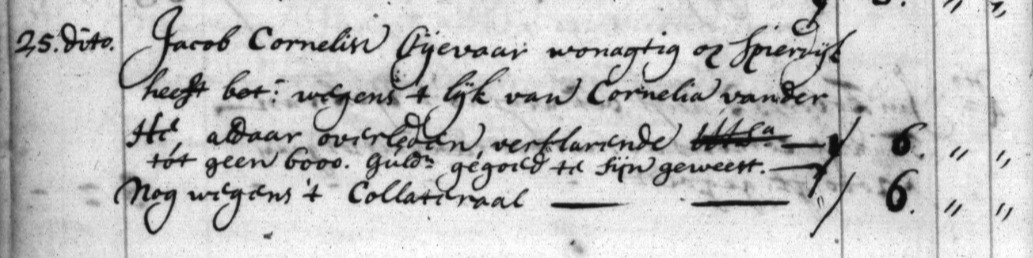 25. dito. Jacob Cornelisz Eijevaar wonagtig op Spierdijk
heeft bet: wegens t lijk van Cornelia vander
Hé aldaar overleden, verklarende 6. " "
tót geen 6000. guldn gegoed te sijn geweest.
Nog wegens t Collateraal 6. " "